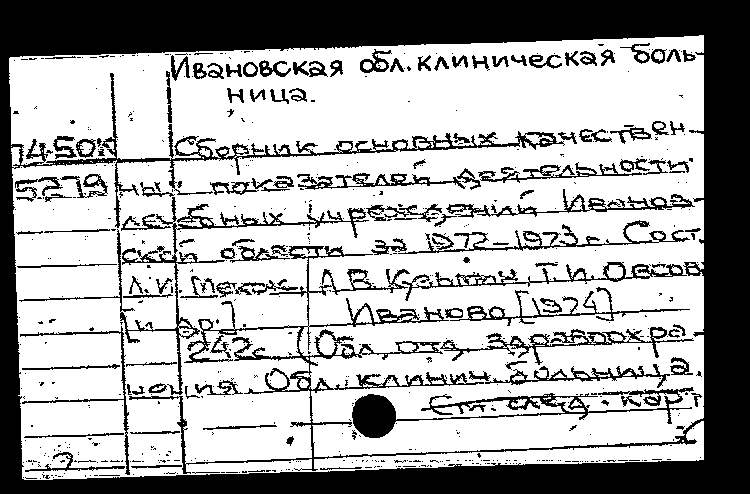 Ивановская обл. клиническая боль-
ница.
74-50К Сборник основных качествен-
5279 ных показателей деятельности
лечебных учреждений Иванов-
ской области за 1972-1973 г. Сост.
Л.И. Мекок, А.В. Кузьмин, Т.И. Овсов
[и др.]. Иваново, [1974].
242с. (Обл. отд. здравоохра-
нения. Обл. клинич. больница.
См. след. карт